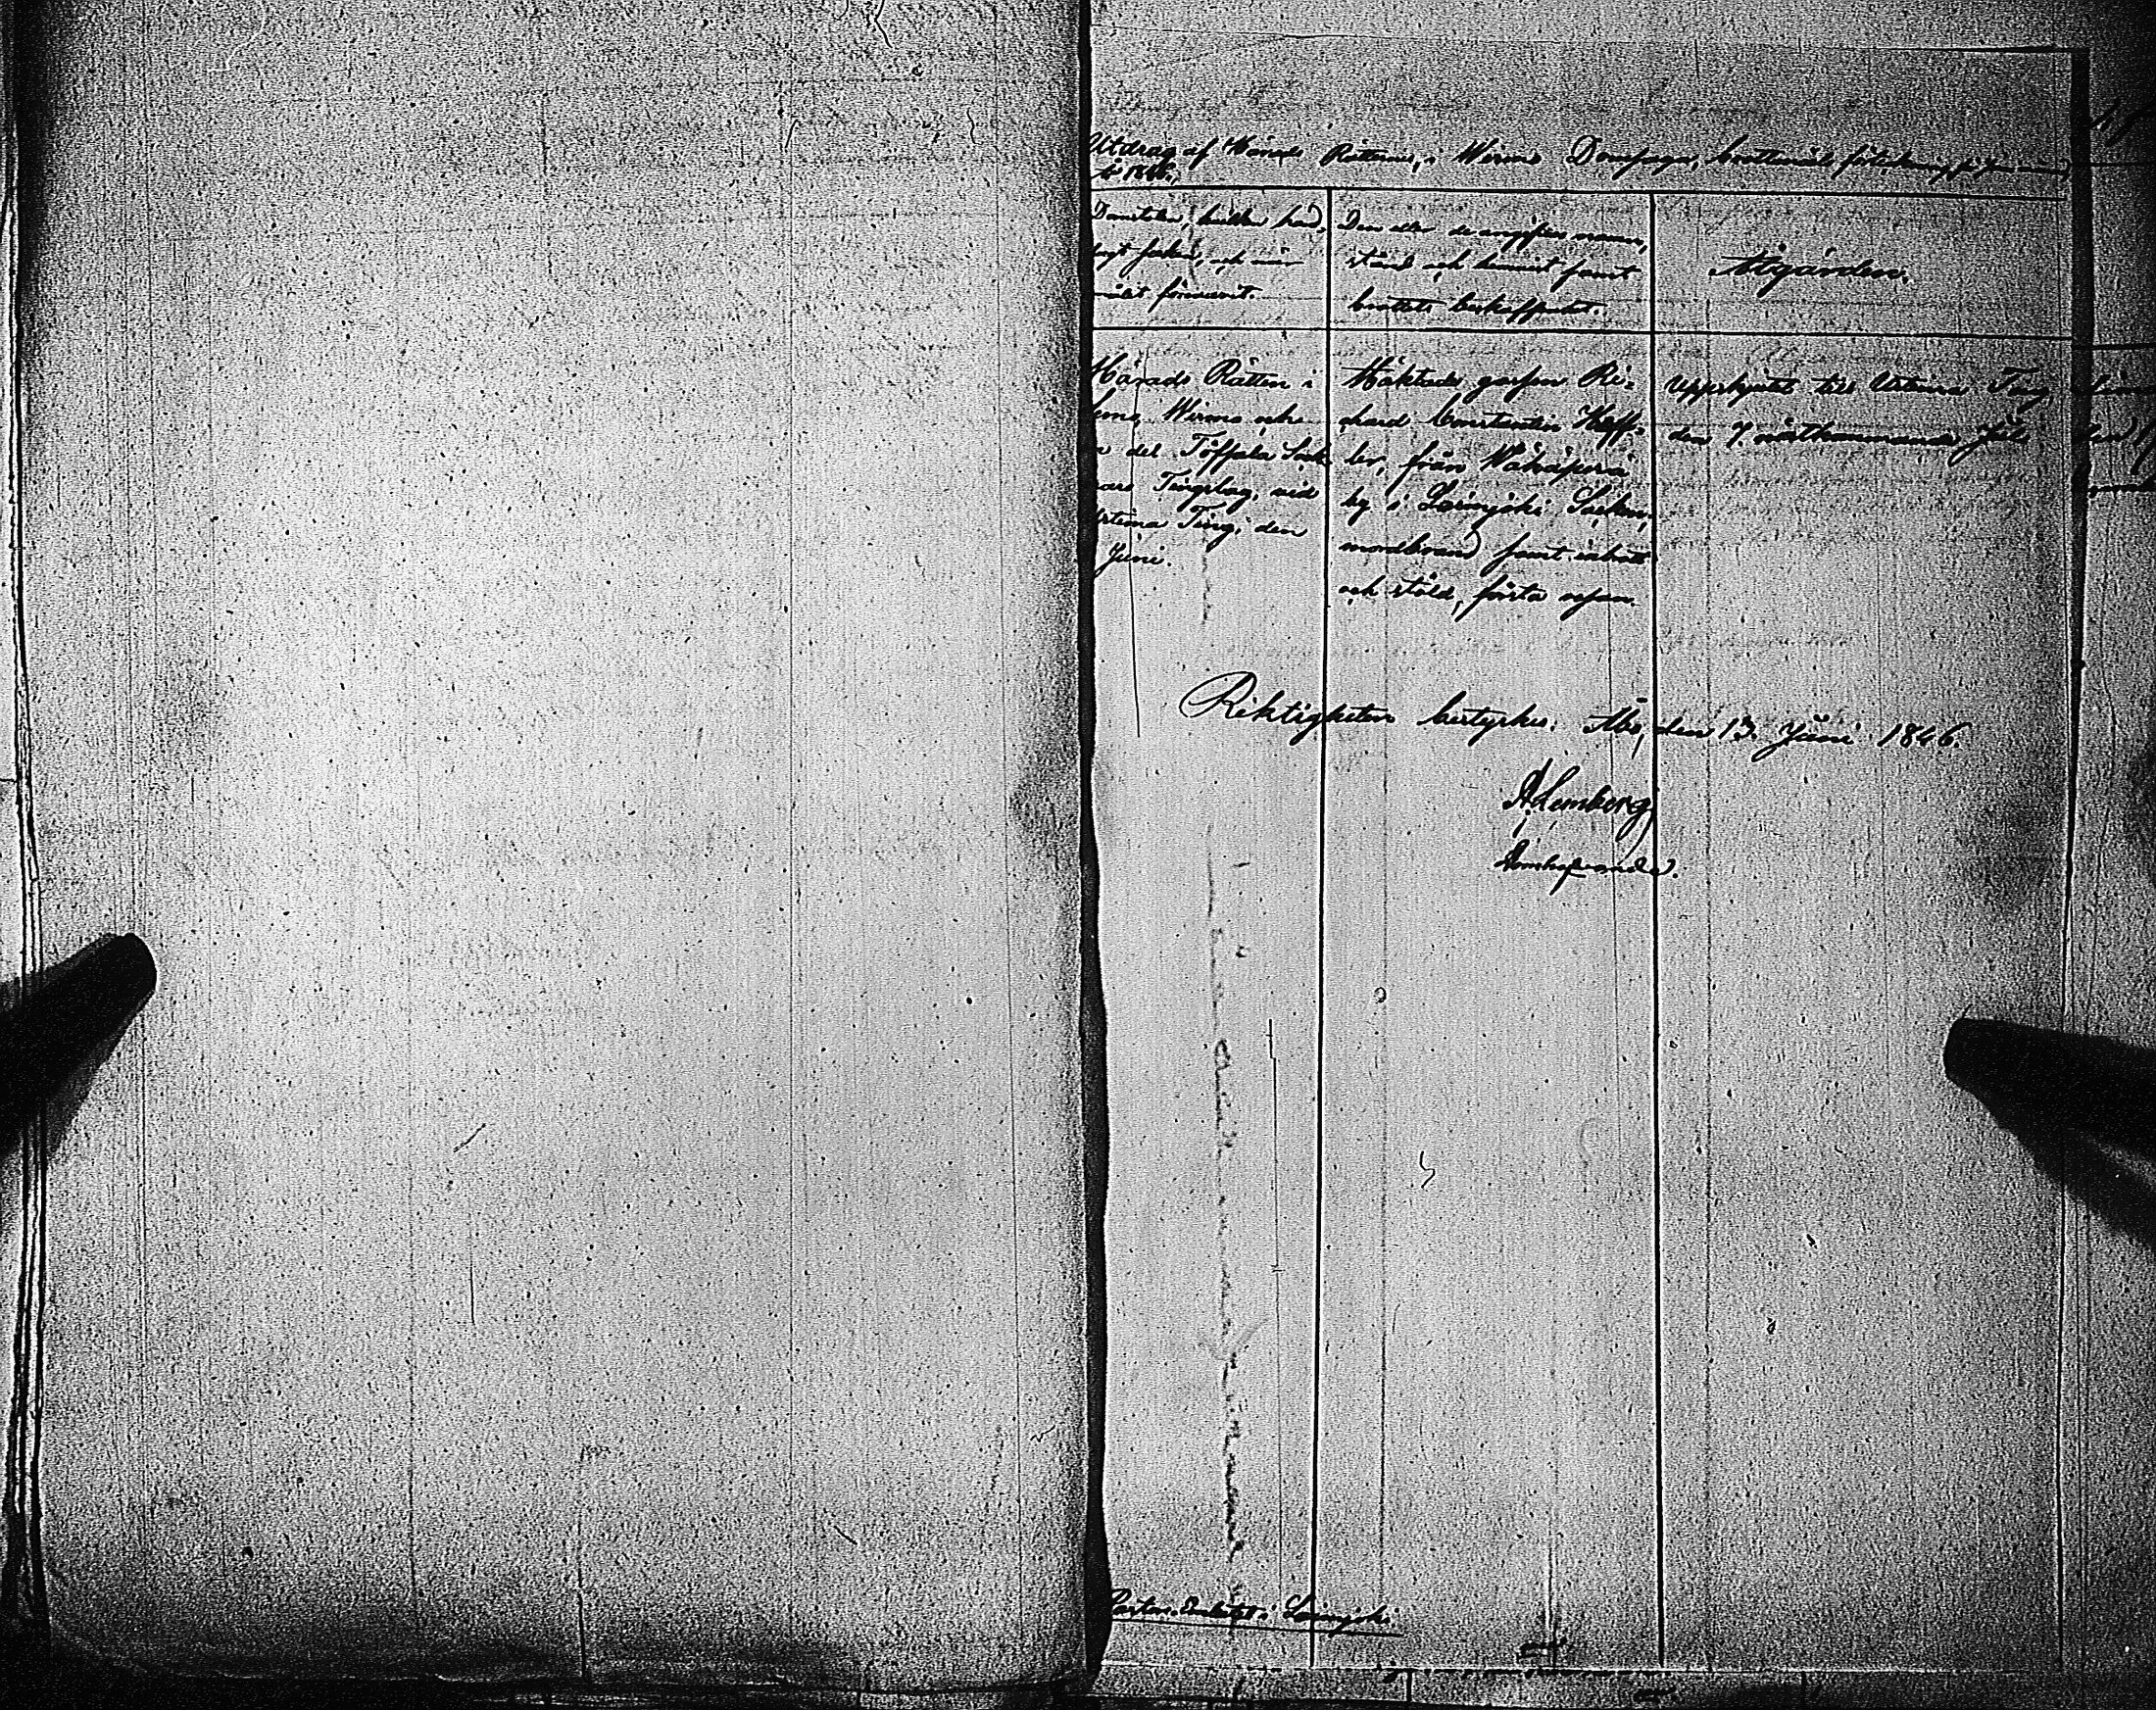 Utdrag af Härads Rätternes, i Wirmo Domsaga, brottmåls förteckning för Juni månad
år 1846.
Domstolen, hvilken hand-
lagt saken, och när
målet förevarit.
Den eller de angifnes namn,
stånd och hemvist samt
brottets beskaffenhet.
Åtgärden.
Härads Rätten i
lemo, Wirmo och
n del Töffsala Sock
nars Tingslag, vid
Urtima Ting, den
Juni.
Häktade gossen Ri-
chard Constantin Hoff-
ler, från Wähäperä
by i Loimijoki Socken,
mordbrand samt inbrott
och stöld, första resan.
Uppskjutit till Urtima Ting
den 7. nästkommande Juli
Riktigheten bestyrker. Åbo, den 13. Juni 1846.
Domhafvande.
Pastors Embetet i Loimijoki